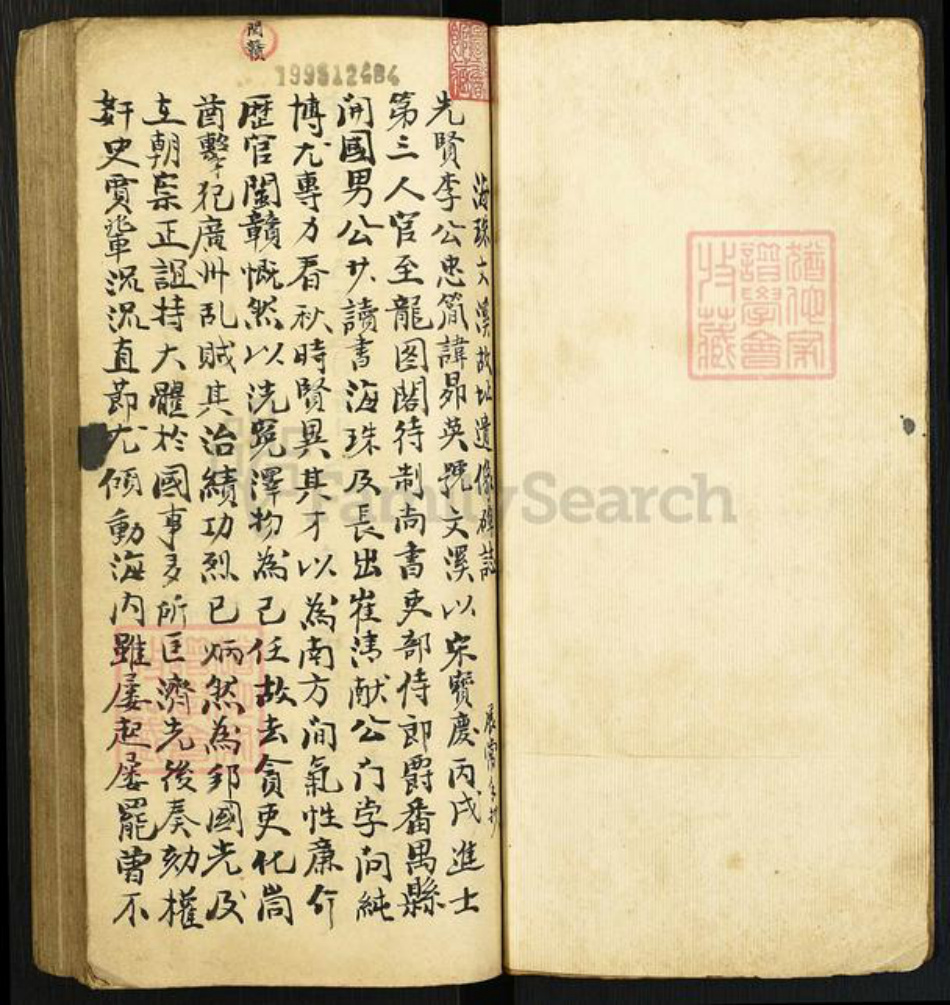 海珠文溪故址遺像碑誌
先賢李公忠簡諱昴英號文溪以宋寶慶丙戌進士
第三人官至龍图閣待制尚書吏部侍郎爵番禺縣
開國男公少讀書海珠及長出崔清献公门学问純
博尤專力春秋時賢異其才以為南方间氣性廉介
歷官閩贛慨然以洗冤澤物為己任故去貪吏化
酋犯廣州乱賊其治績功烈已炳然為邦國光及
立朝正誼持大體於國事多所匡濟先後奏劾權
奸史賈輩沉沉直節尤傾動海内雖屡起屡罷曾不
閩贛
199512484
譜學會
收藏
FamilySearch